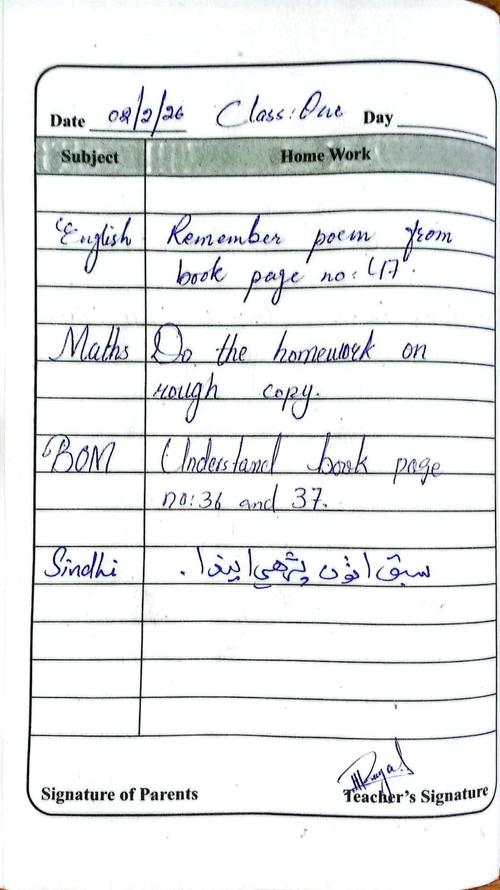 Date 02/2/26 Class: One Day
Subject Home Work
English Remember poem from
book page no: 47.
Maths Do the homework on
rough copy.
BOM Understand book page
no: 36 and 37.
Sindhi سبق پڙهي ايندا.
Signature of Parents Teacher's Signature